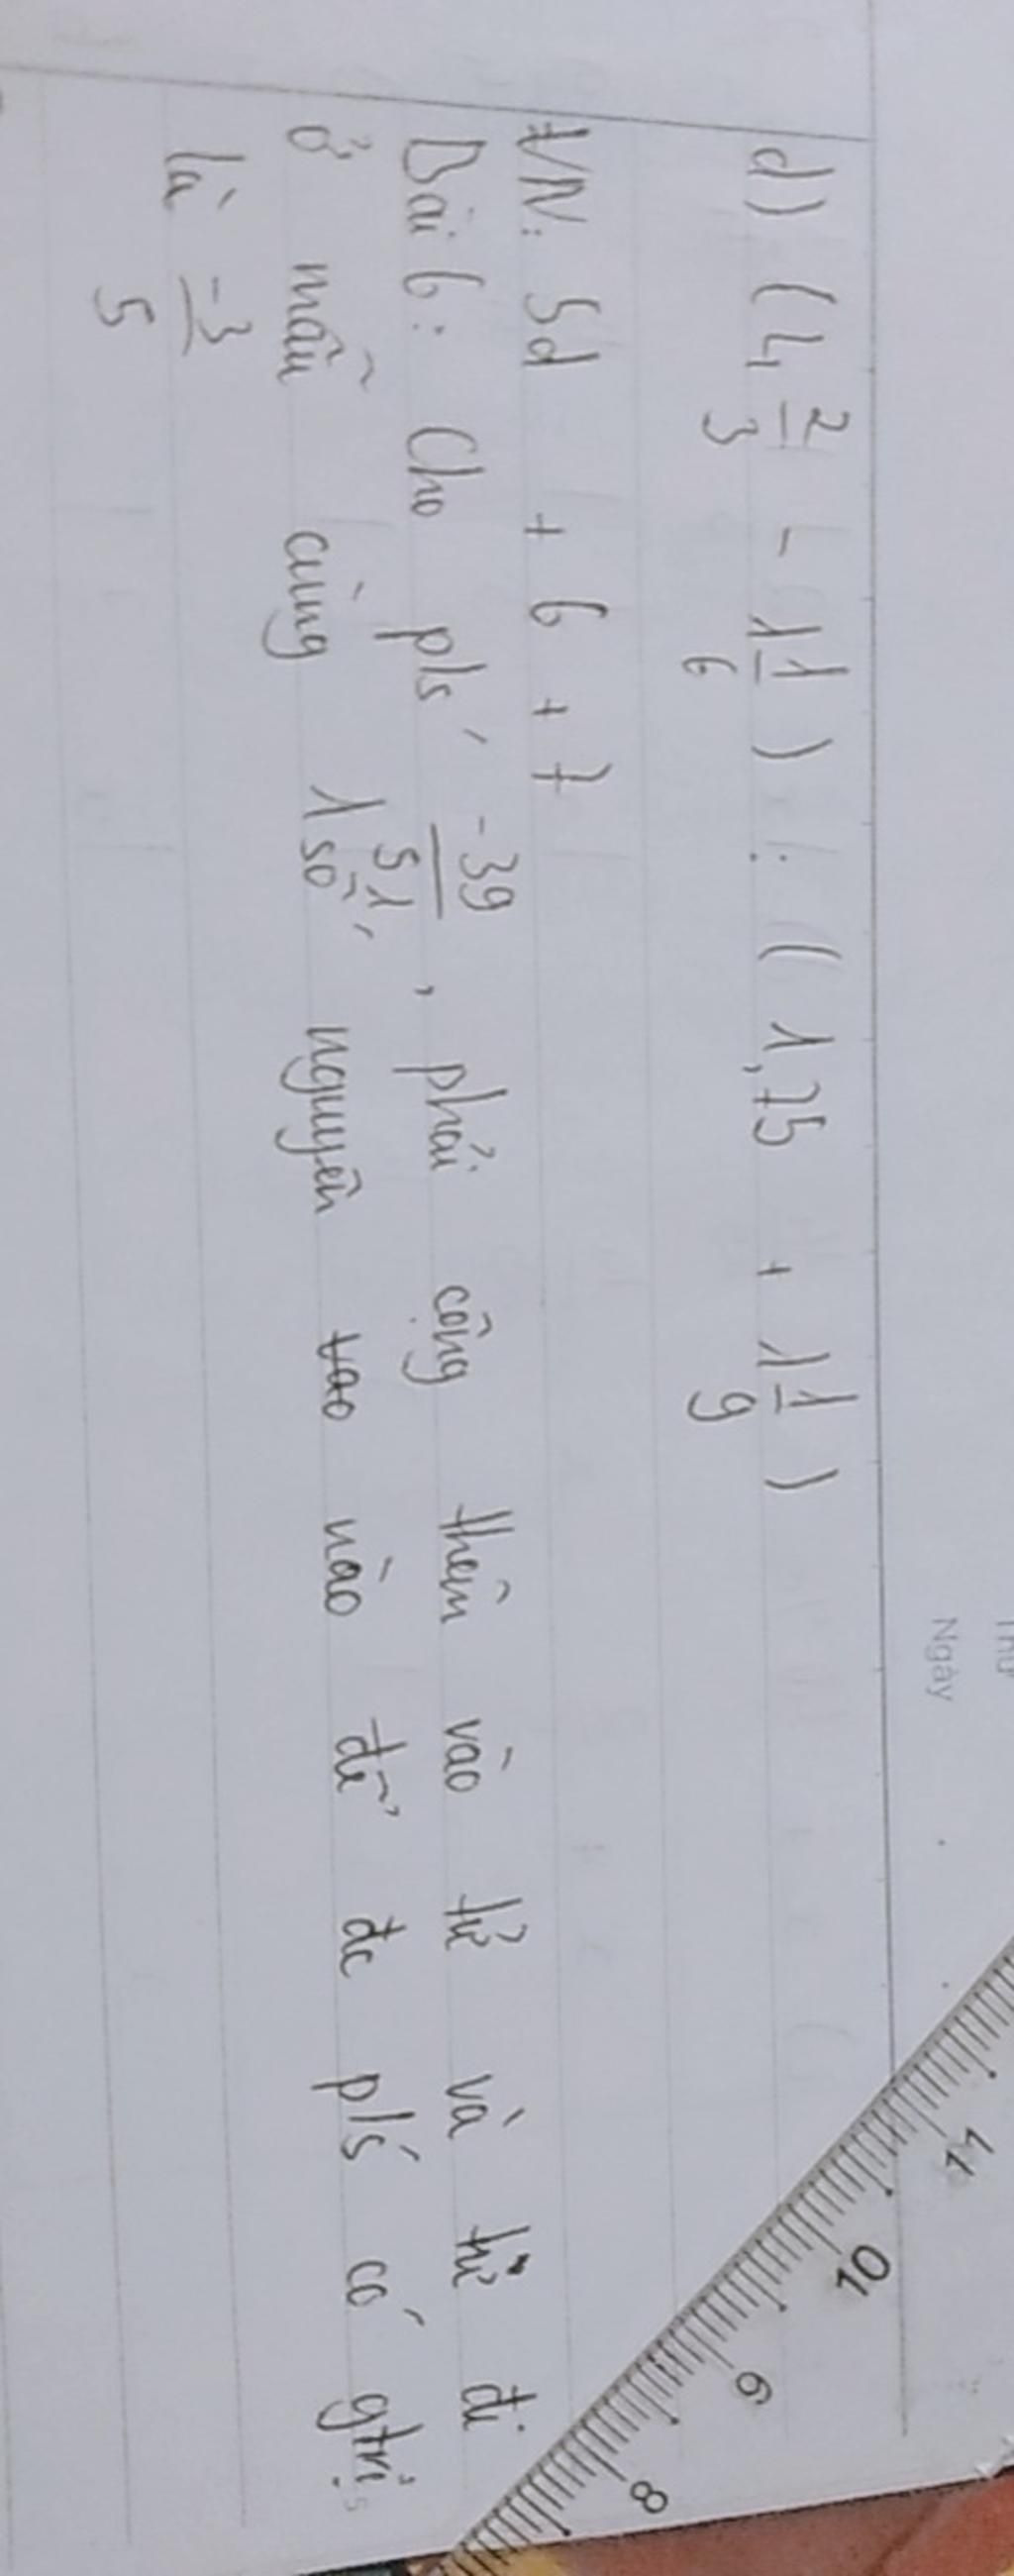 Thứ
Ngày
d) (4 2/3 - 1 1/6) : (1,75 + 1 1/9)
VN: 5d + 6 + 7
Bài 6: Cho pls -39/51, phải cộng thêm vào tử và trừ đi
ở mẫu cùng 1 số nguyên vao nào để đc pls có gtrị
là -3/5
11
10
9
8